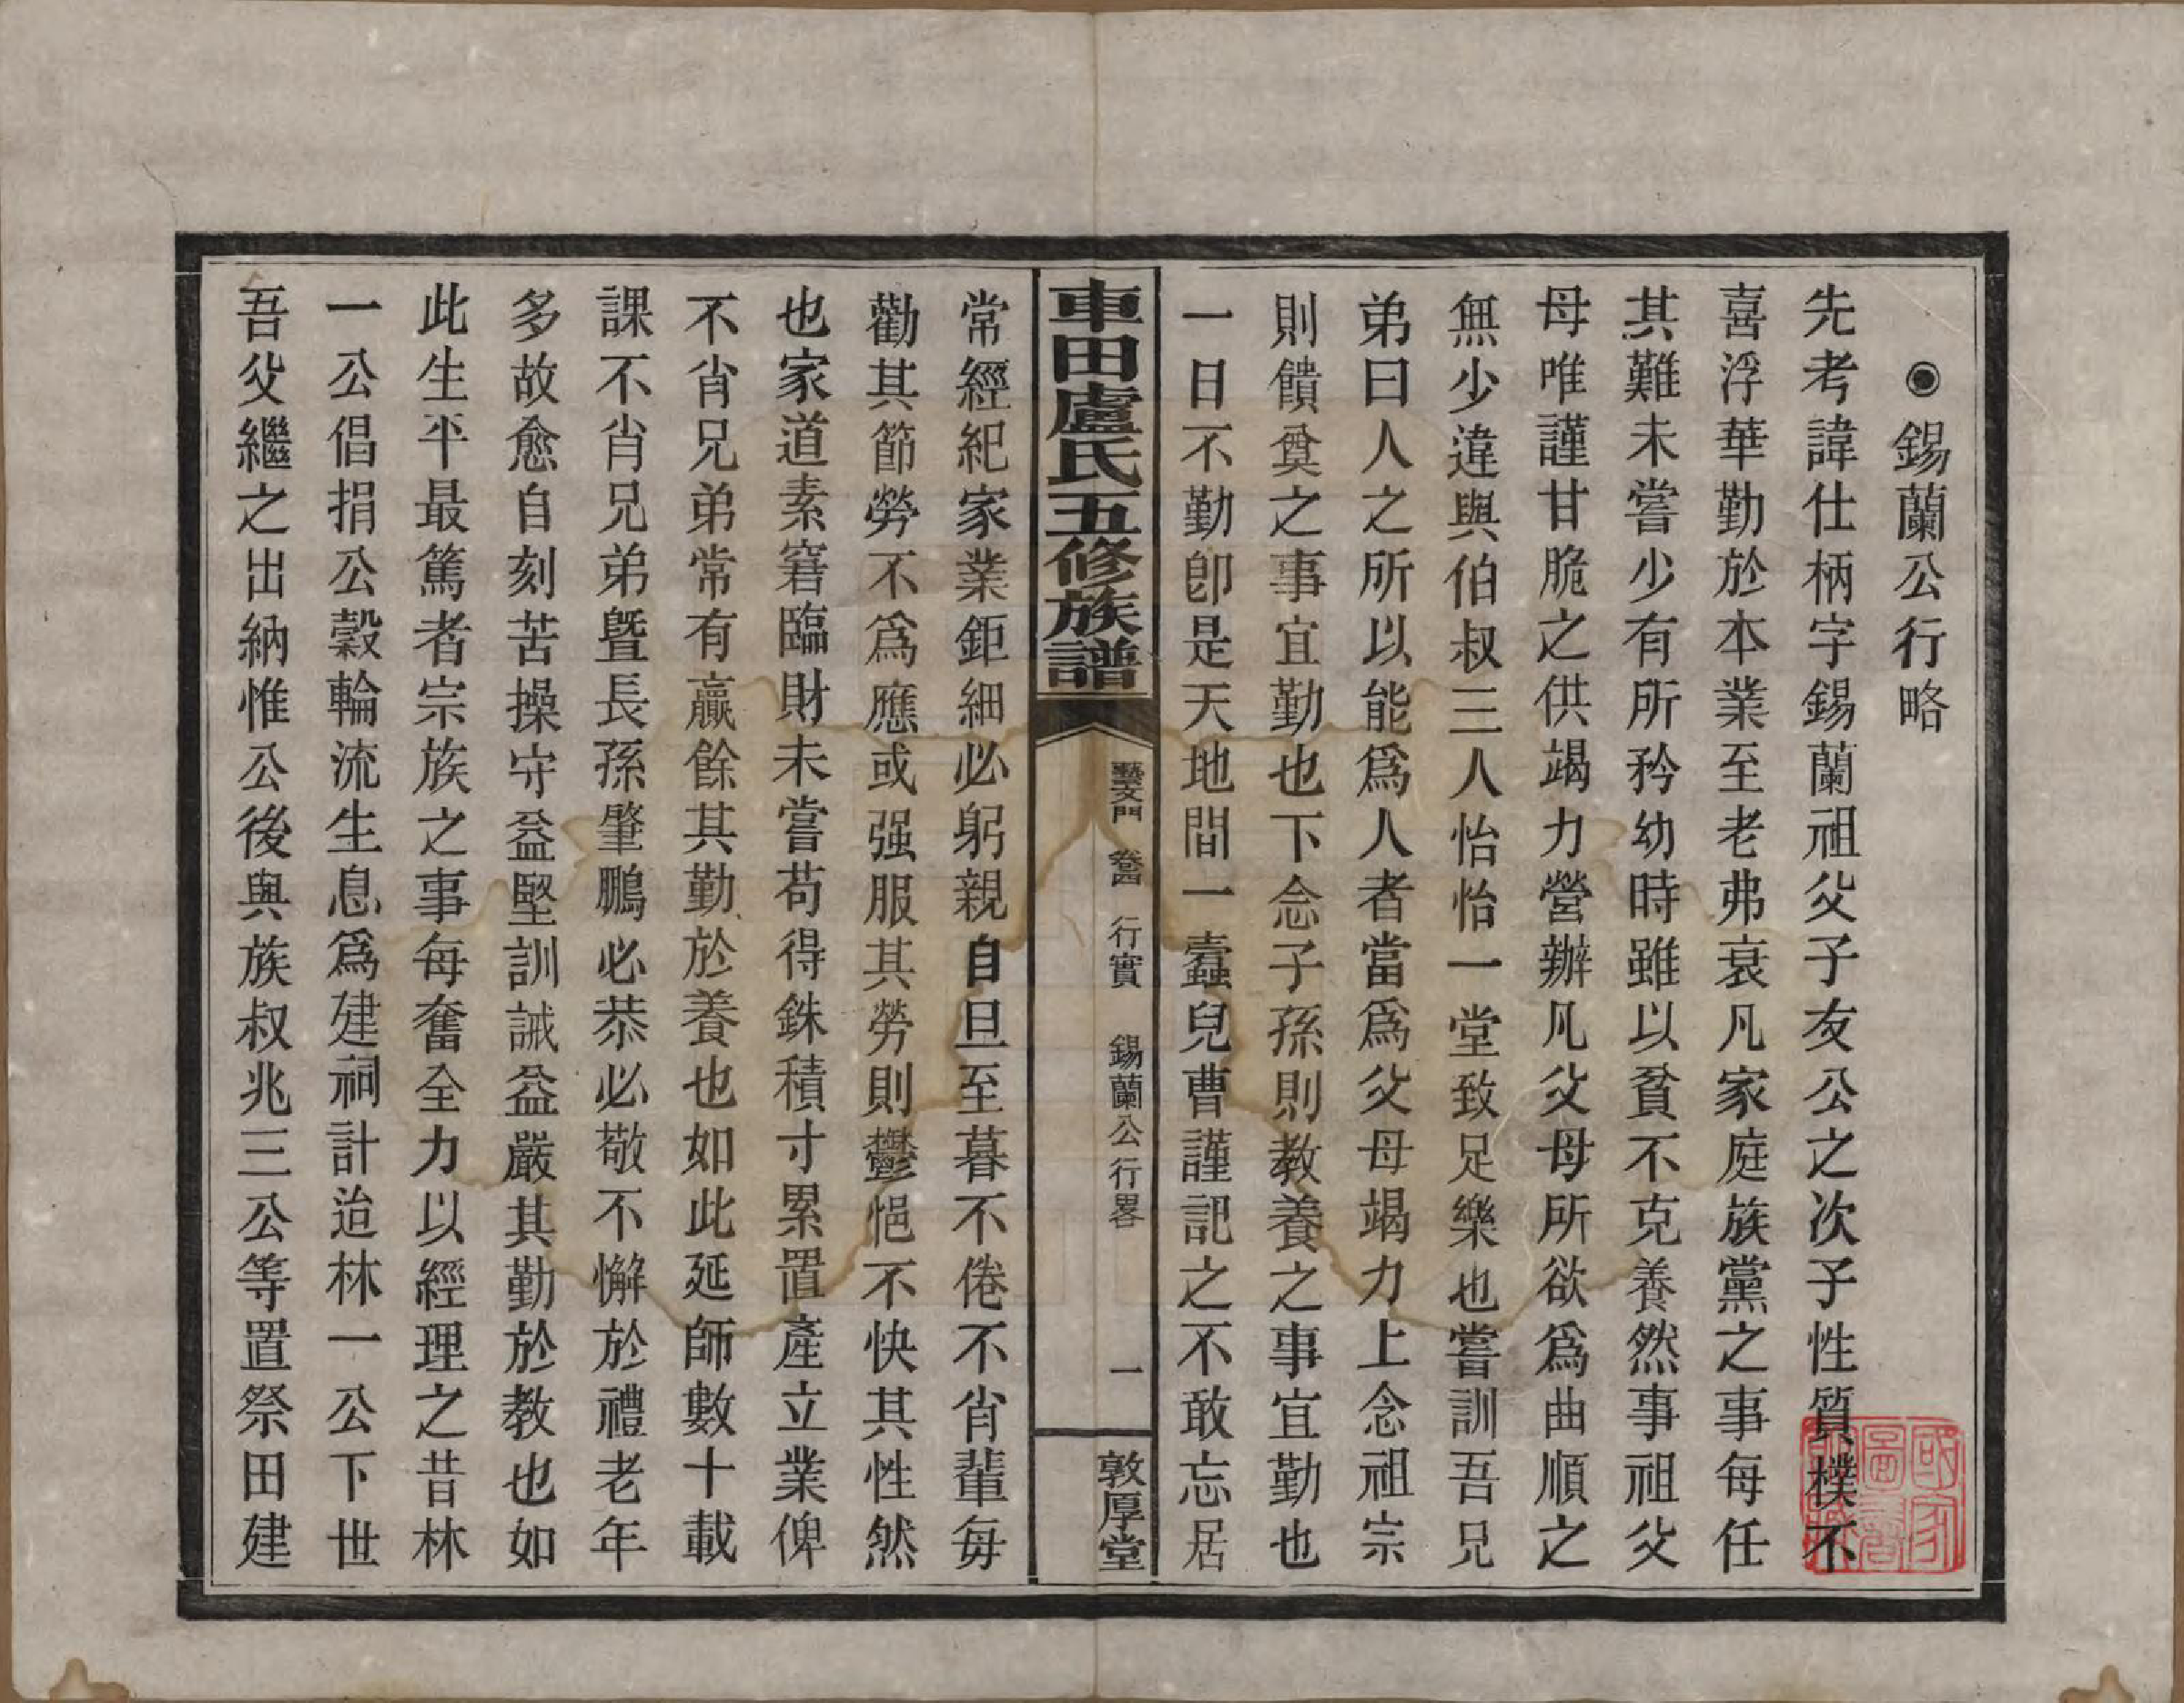 ◉錫蘭公行略
先考諱仕柄字錫蘭祖父子友公之次子性質樸不
喜浮華勤於本業至老弗衰凡家庭族黨之事每任
其難未嘗少有所矜幼時雖以貧不克養然事祖父
母唯謹甘脆之供竭力營辦凡父母所欲爲曲順之
無少違與伯叔三人怡怡一堂致足樂也嘗訓吾兄
弟曰人之所以能爲人者當爲父母竭力上念祖宗
則饋奠之事宜勤也下念子孫則教養之事宜勤也
一日不勤卽是天地間一蠹兒曹謹記之不敢忘居
車田盧氏五修族譜
藝文門 卷四 行實 錫蘭公行畧
一
敦厚堂
常經紀家業鉅細必躬親自旦至暮不倦不肖輩每
勸其節勞不爲應或强服其勞則鬱悒不快其性然
也家道素窘臨財未嘗苟得銖積寸累置產立業俾
不肖兄弟常有贏餘其勤於養也如此延師數十載
課不肖兄弟曁長孫肇鵬必恭必敬不懈於禮老年
多故愈自刻苦操守益堅訓誡益嚴其勤於教也如
此生平最篤者宗族之事每奮全力以經理之昔林
一公倡捐公穀輪流生息爲建祠計迨林一公下世
吾父繼之出納惟公後與族叔兆三公等置祭田建
國家圖書館藏